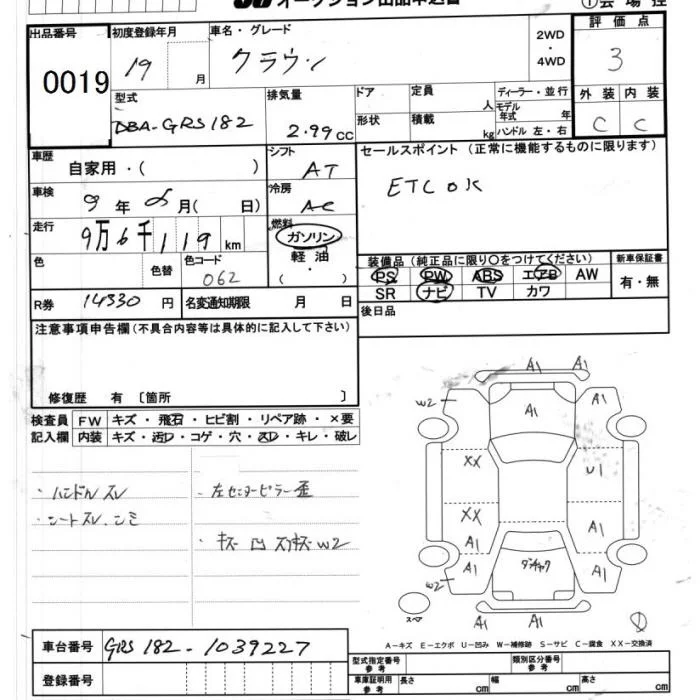 オークション出品申込書
①会場控
出品番号
0019
初度登録年月
19 月
車名・グレード
クラウン
2WD
・
4WD
評価点
3
型式
DBA-GRS182
排気量
2.99cc
ドア
形状
定員
人
積載
kg
ディーラー・並行
モデル年式 年
ハンドル 左・右
外装 内装
C C
車歴
自家用・( )
シフト
AT
セールスポイント(正常に機能するものに限ります)
ETC OK
車検
9年 8月( 日)
冷房
AC
走行
9万6千119km
燃料
ガソリン
軽油
( ・ )
色
色替
色コード
062
装備品(純正品に限り〇をつけてください)
PS PW ABS エアB AW
SR ナビ TV カワ
新車保証書
有・無
R券 14330円
名変通知期限 月 日
後日品
注意事項申告欄(不具合内容等は具体的に記入して下さい)
修復歴 有〔箇所 〕
検査員記入欄
FW キズ・飛石・ヒビ割・リペア跡・×要
内装 キズ・汚レ・コゲ・穴・スレ・キレ・破レ
・ハンドルスレ
・シートスレ、シミ
・左センターピラー歪
・キズ凹スリキズW2
A1 A1
W2 A1 A1
XX U1
XX A1
A1
A1 ダンチャク A1
W2
スペア
A1 A1 A1
A-キズ E-エクボ U-凹み W-補修跡 S-サビ C-腐食 XX-交換済
車台番号 GRS182-1039227
登録番号
型式指定番号 参考
類別区分番号 参考
車庫証明用 参考
長さ cm 幅 cm 高さ cm